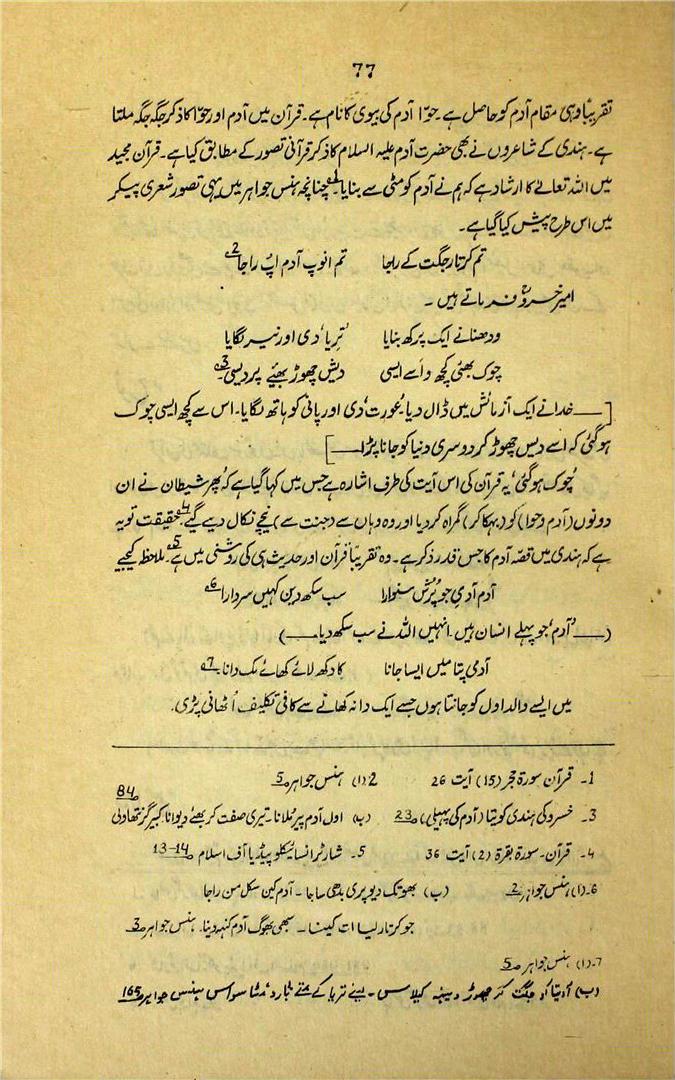 77
تقریباً وہی مقام آدم کو حاصل ہے۔ حوّا آدم کی بیوی کا نام ہے۔ قرآن میں آدم اور حوّا کا ذکر جگہ جگہ ملتا
ہے۔ ہندی کے شاعروں نے بھی حضرت آدم علیہ السلام کا ذکر قرآنی تصور کے مطابق کیا ہے۔ قرآن مجید
میں اللہ تعالےٰ کا ارشاد ہے کہ ہم نے آدم کو مٹی سے بنایا۔1 چنانچہ ہنس جواہر میں یہی تصور شعری پیکر
میں اس طرح پیش کیا گیا ہے۔
تم کرتار جگت کے راجا تم انوپ آدم اُپ راجا2
امیر خسروؒ فرماتے ہیں۔
ودھنا نے ایک پرکھ بنایا ’تریا‘ دی اور نیر لگایا
چوک بھئی کچھ واسے ایسی دیش چھوڑ بھئے پردیسی۔3
[— خدا نے ایک آزمائش میں ڈال دیا۔ ’عورت‘ دی اور پانی کو ہاتھ لگایا۔ اس سے کچھ ایسی چوک
ہوگئی کہ اسے دیس چھوڑ کر دوسری دنیا کو جانا پڑا—]
’چوک ہوگئی‘ یہ قرآن کی اس آیت کی طرف اشارہ ہے جس میں کہا گیا ہے کہ پھر شیطان نے ان
دونوں (آدم و حوا) کو (بہکا کر) گمراہ کر دیا اور وہ وہاں سے (جنت سے) نیچے نکال دیے گیے۔4 حقیقت تو یہ
ہے کہ ہندی میں قصہ آدم کا جس قدر ذکر ہے۔ وہ تقریباً قرآن اور حدیث ہی کی روشنی میں ہے۔5 ملاحظہ کیجیے
آدم آدی جو پُرش سنوارا سب سکھ دین کہیں سردارا6
(— ’آدم‘ جو پہلے انسان ہیں۔ انہیں اللہ نے سب سکھ دیا —)
آدی پتا میں ایسا جانا کا دکھ لائے کھائے یک دانا۔7
میں ایسے والد اول کو جانتا ہوں جسے ایک دانہ کھانے سے کافی تکلیف اُٹھانی پڑی۔
1۔ قرآن سورۃ حجر (15) آیت 26 2 (ا) ہنس جواہر صـ 5
3۔ خسرو کی ہندی کویتا (آدم کی پہیلی) صـ 23 (ب) اول آدم پیر مُلانا۔ تیری صفت کر بھئے دیوانا۔ کبیر گرنتھاولی صـ 84
4۔ قرآن۔ سورۃ بقرۃ (2) آیت 36 5۔ شارٹر انسائیکلوپیڈیا آف اسلام صـ 13-14
6۔ (ا) ہنس جواہر صـ 2 (ب) بھوتک دیو پری بدھی ساجا۔ آدم کین سکل من راجا
جو کرتار لیا ات کینا۔ سبھی بھوگ آدم کنہہ دینا۔ ہنس جواہر صـ 3
7۔ (ا) ہنس جواہر صـ 5
(ب) آدپتا کو جگت کر چھوڑ دینہہ کیلاس۔ ہنس جواہر صـ 165